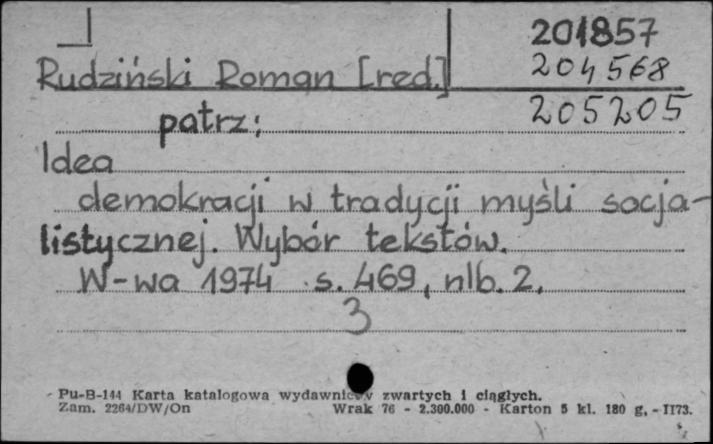 201857
Rudziński Roman [red.] 204568
patrz: 205205
Idea
demokracji w tradycji myśli socja-
listycznej. Wybór tekstów.
W-wa 1974 s. 469, nlb. 2.
3
Pu-B-144 Karta katalogowa wydawnictw zwartych i ciągłych.
Zam. 2264/DW/On Wrak 76 - 2.300.000 - Karton 5 kl. 180 g, - II73.